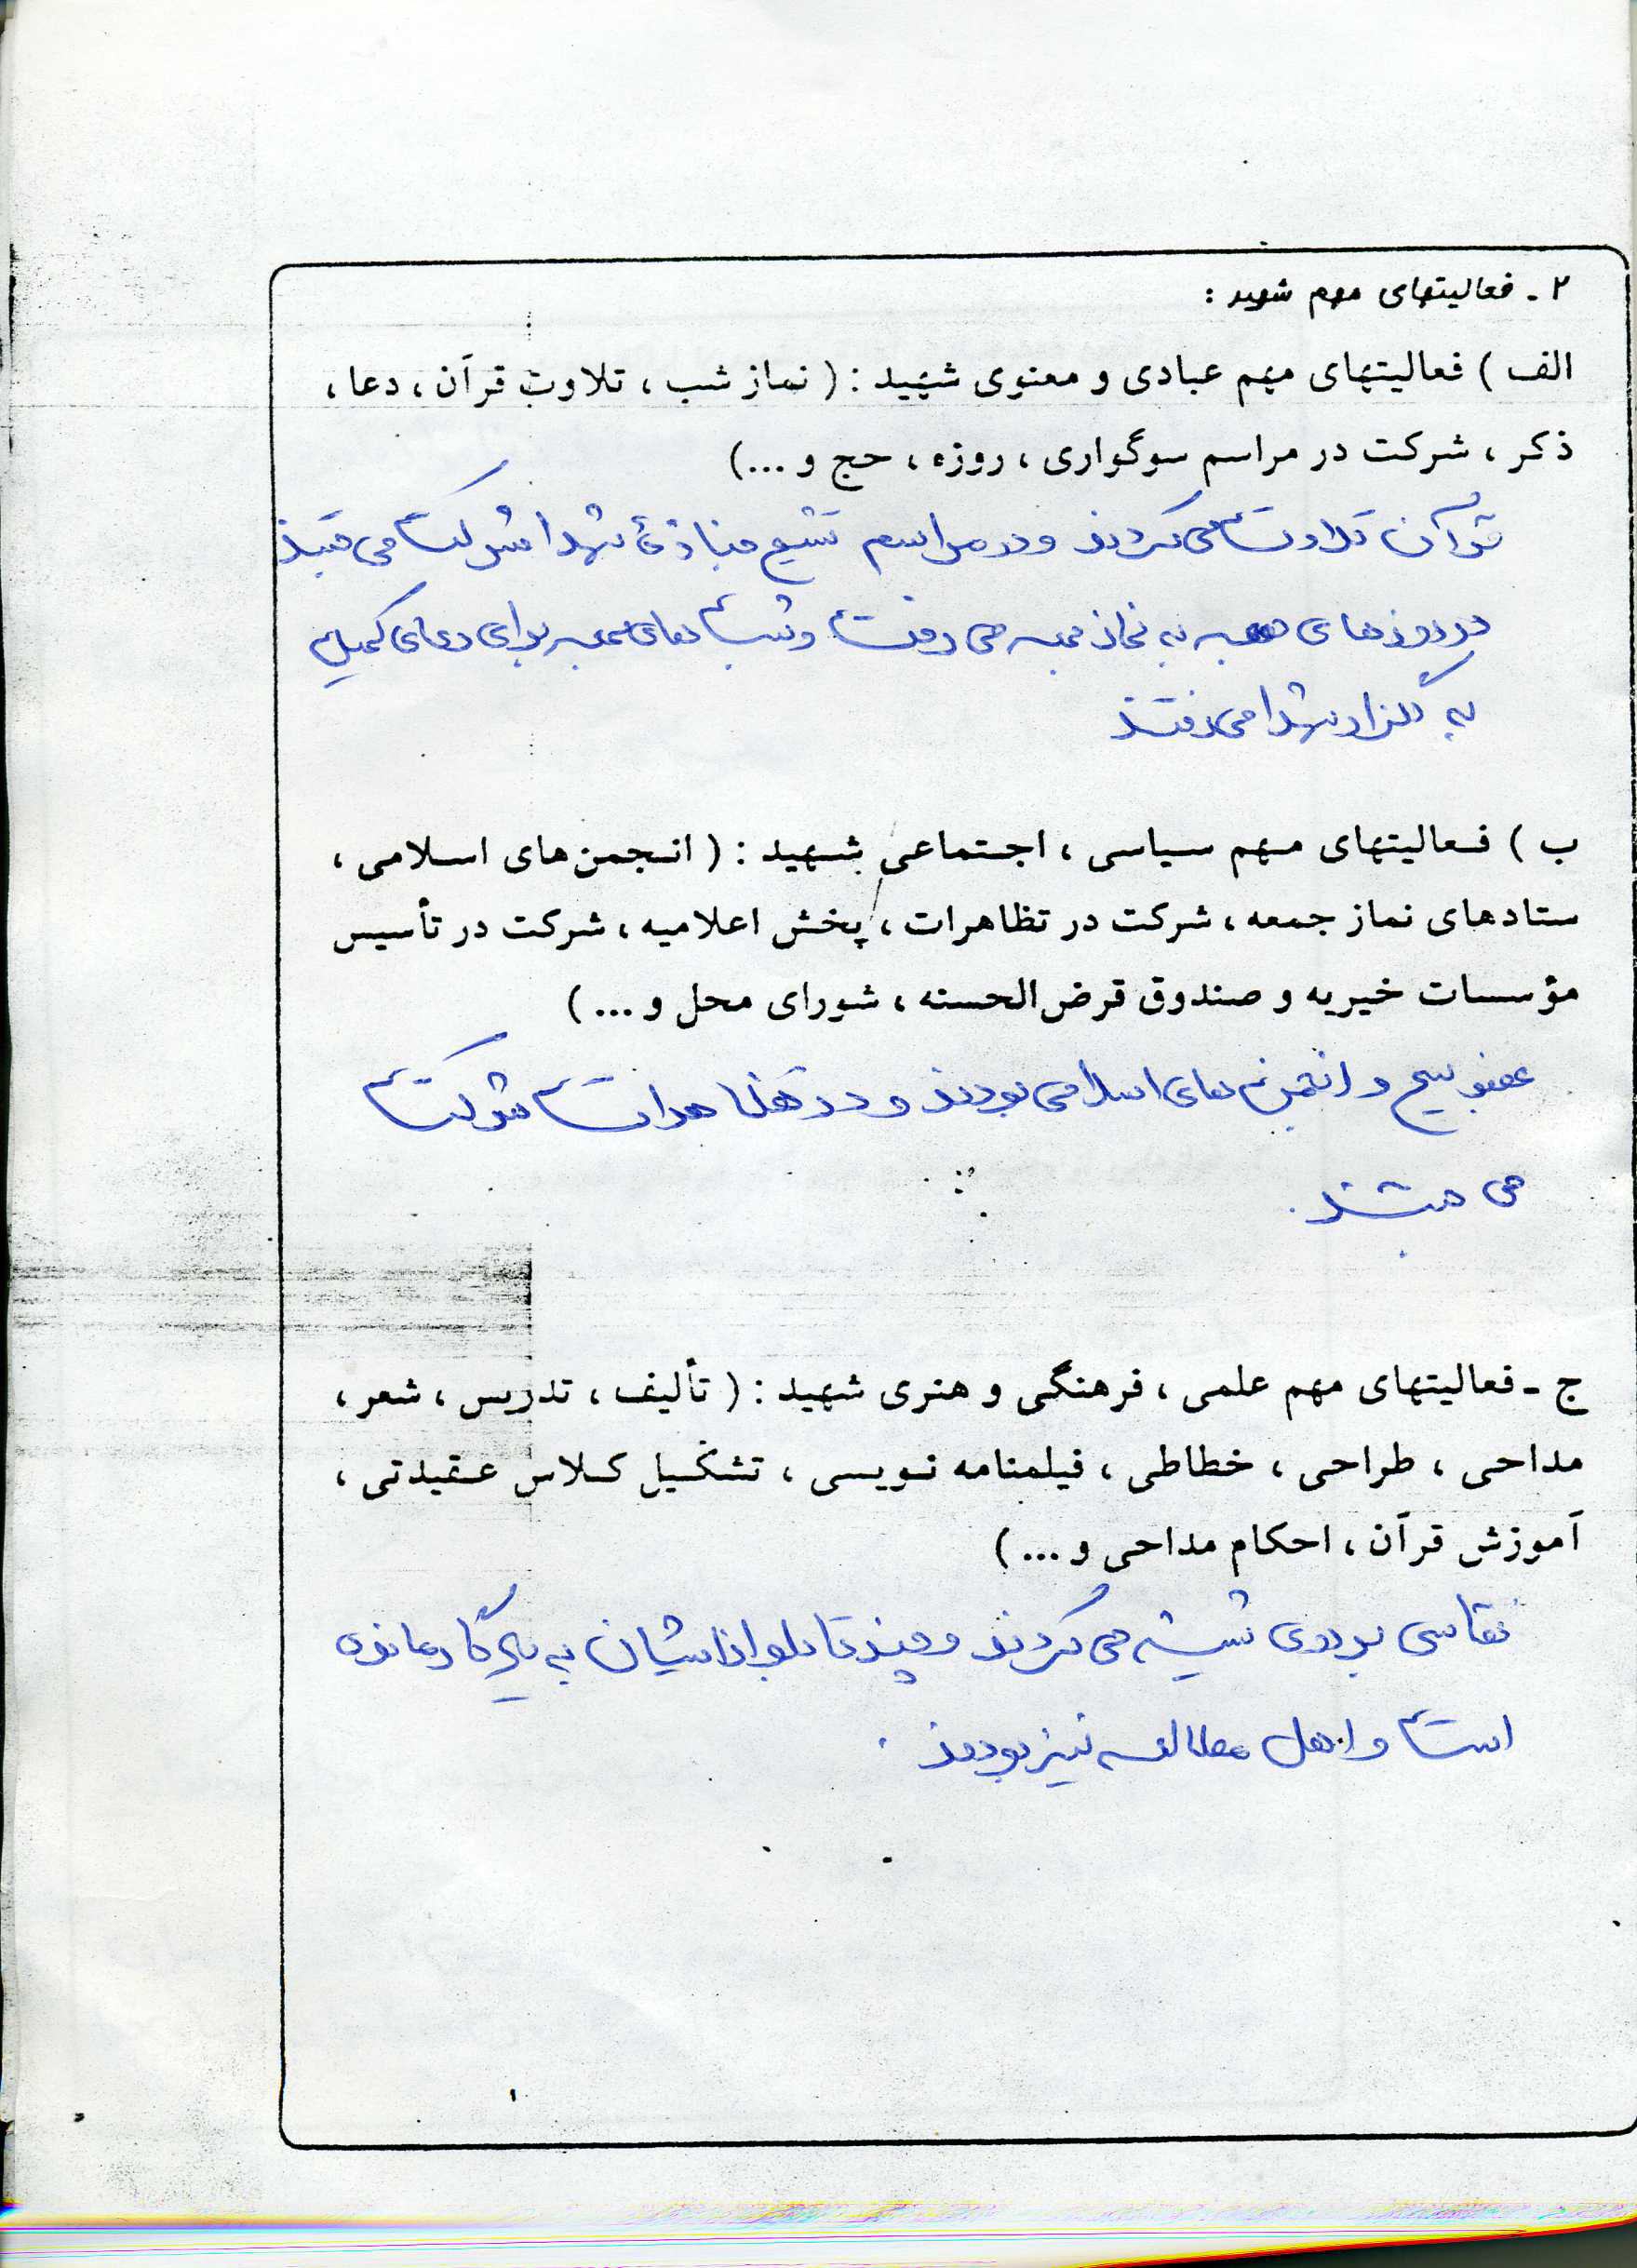 ۲ ـ فعالیتهای مهم شهید :
الف ) فعالیتهای مهم عبادی و معنوی شهید : ( نماز شب ، تلاوت قرآن ، دعا ،
ذکر ، شرکت در مراسم سوگواری ، روزه ، حج و ...)
قرآن تلاوت می کردند و در مراسم تشیع جنازهٔ شهدا شرکت می
در روزهای جمعه به نماز جمعه می رفت و شب های جمعه برای دعای کمیل
به گلزار شهدا می رفتند
ب ) فعالیتهای مهم سیاسی ، اجتماعی شهید : ( انجمن های اسلامی ،
ستادهای نماز جمعه ، شرکت در تظاهرات ، پخش اعلامیه ، شرکت در تأسیس
مؤسسات خیریه و صندوق قرض الحسنه ، شورای محل و ... )
عضو بسیج و انجمن های اسلامی بودند و در تظاهرات شرکت
می
ج ـ فعالیتهای مهم علمی ، فرهنگی و هنری شهید : ( تألیف ، تدریس ، شعر ،
مداحی ، طراحی ، خطاطی ، فیلمنامه نویسی ، تشکیل کلاس عقیدتی ،
آموزش قرآن ، احکام مداحی و ... )
نقاشی بر روی شیشه می کردند و چند تابلو از ایشان به یادگار مانده
است و اهل مطالعه نیز بودند .